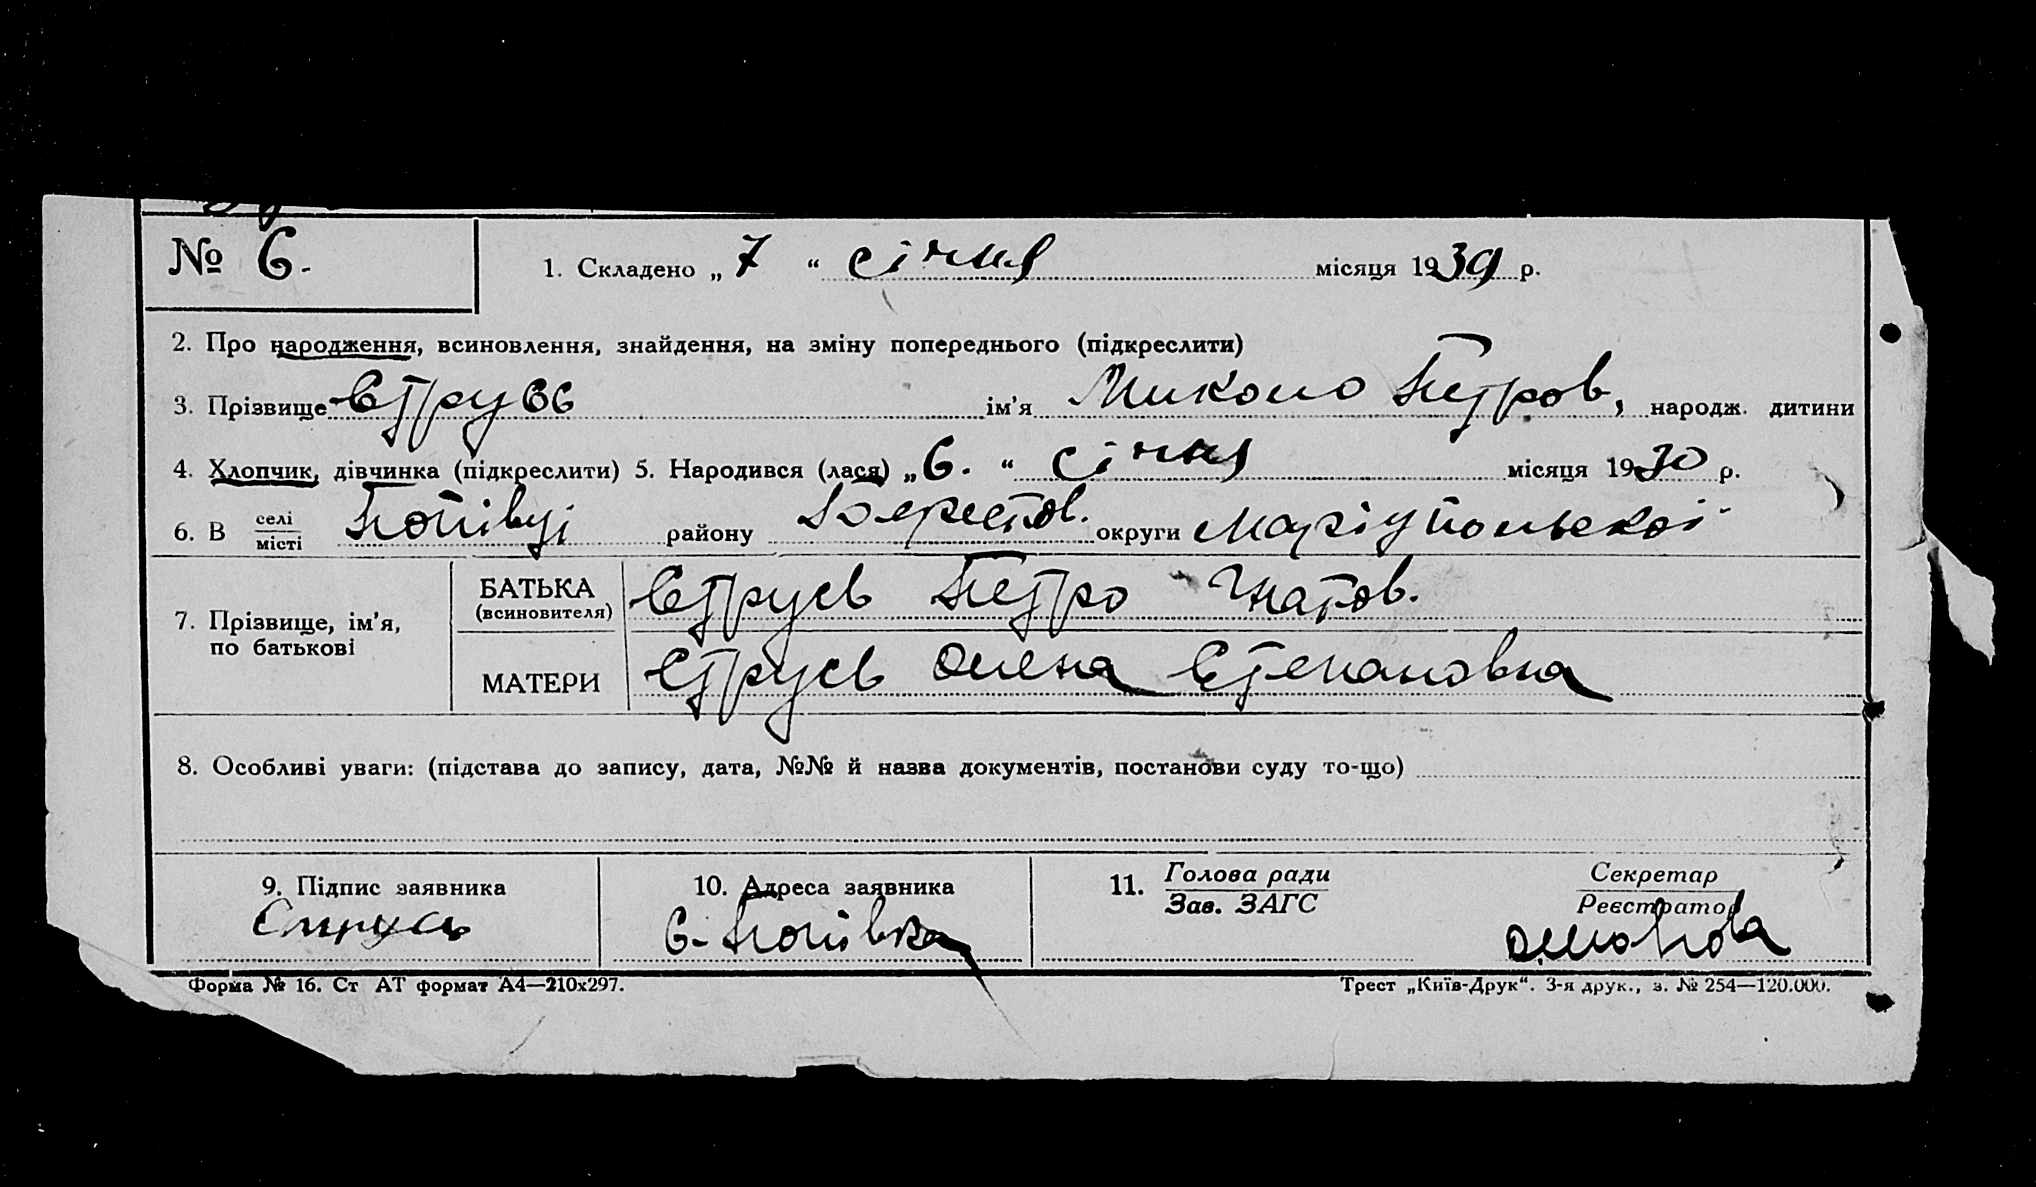 № 6.
1. Складено „ 7 “ січня місяця 1939 р.
2. Про народження, всиновлення, знайдення, на зміну попереднього (підкреслити)
3. Прізвище Струсь ім’я Микола Петров, народж. дитини
4. Хлопчик, дівчинка (підкреслити) 5. Народився (лася) „ 6. “ січня місяця 1930 р.
6. В селі/місті Попівці району округи Маріупольскої
7. Прізвище, ім’я, по батькові
БАТЬКА (всиновителя) Струсь Петро Гнатов.
МАТЕРИ Струсь Олена Степановна
8. Особливі уваги: (підстава до запису, дата, №№ й назва документів, постанови суду то-що)
9. Підпис заявника
10. Адреса заявника
11. Голова ради / Зав. ЗАГС
Секретар / Реєстратор
Струсь
с. Попівка
Форма № 16. Ст АТ формат А4—210х297.
Трест „Київ-Друк“. 3-я друк., з. № 254—120.000.